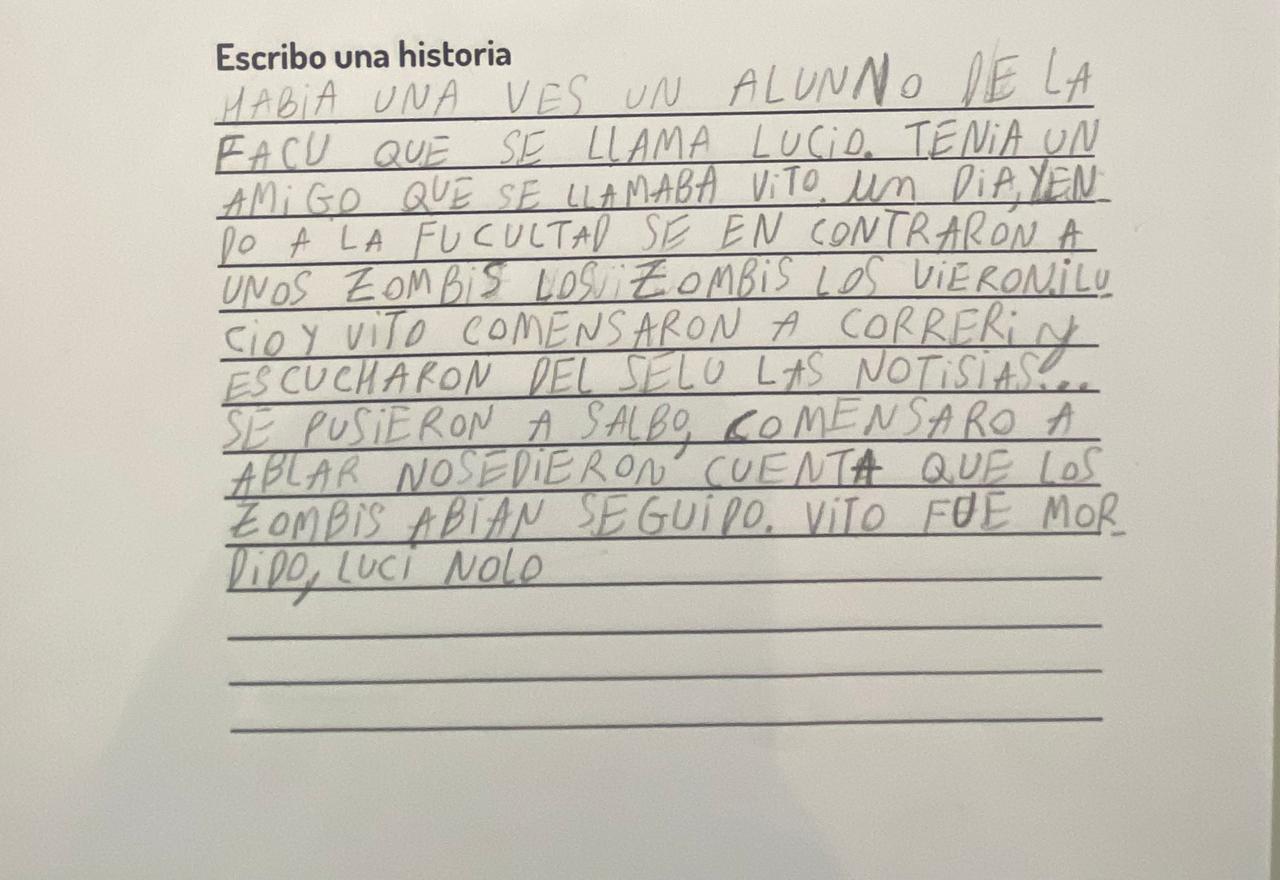 Escribo una historia
HABIA UNA VES UN ALUNNO DE LA
FACU QUE SE LLAMA LUCIO. TENIA UN
AMIGO QUE SE LLAMABA VITO. un DIA, YEN
DO A LA FUCULTAD SE EN CONTRARON A
UNOS ZOMBIS LOS ZOMBIS LOS VIERON. LU
CIO Y VITO COMENSARON A CORRER Y
ESCUCHARON DEL SELU LAS NOTISIAS...
SE PUSIERON A SALBO, COMENSARO A
ABLAR NOSEDIERON CUENTA QUE LOS
ZOMBIS ABIAN SEGUIDO. VITO FUE MOR
DIDO, LUCI NOLO